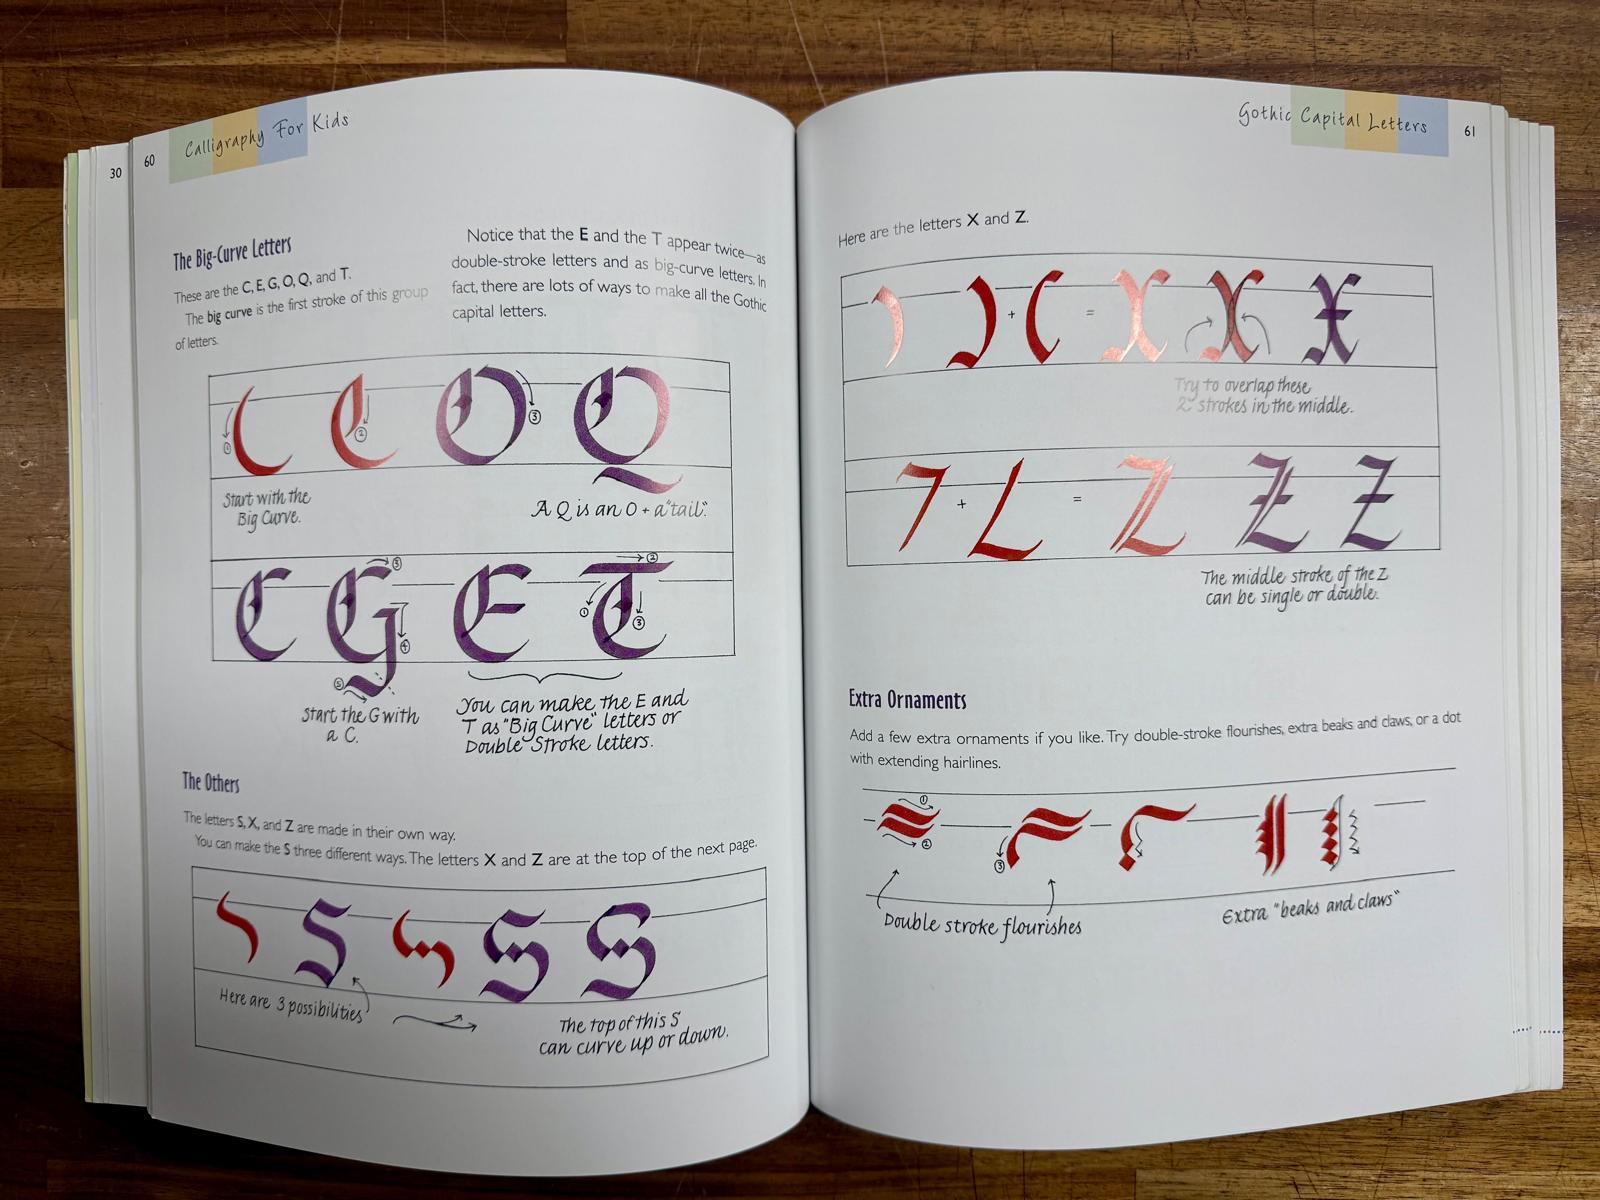 30
60
Calligraphy For Kids
The Big-Curve Letters
These are the C, E, G, O, Q, and T.
The big curve is the first stroke of this group
of letters.
Notice that the E and the T appear twice—as
double-stroke letters and as big-curve letters. In
fact, there are lots of ways to make all the Gothic
capital letters.
C O Q
① ② ③
Start with the
Big Curve.
A Q is an O + a "tail".
C G E T
③ ④ ⑤ ① ② ③
Start the G with
a C.
You can make the E and
T as "Big Curve" letters or
Double Stroke letters.
The Others
The letters S, X, and Z are made in their own way.
You can make the S three different ways. The letters X and Z are at the top of the next page.
S S S
Here are 3 possibilities
The top of this S
can curve up or down.
Gothic Capital Letters
61
Here are the letters X and Z.
+ = X X X
Try to overlap these
2 strokes in the middle.
+ = Z Z Z
The middle stroke of the Z
can be single or double.
Extra Ornaments
Add a few extra ornaments if you like. Try double-stroke flourishes, extra beaks and claws, or a dot
with extending hairlines.
① ② ③
Double stroke flourishes
Extra "beaks and claws"